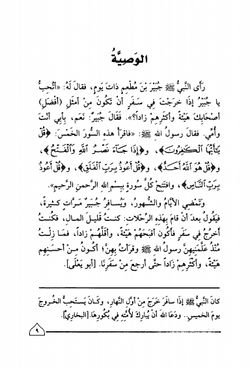 الوَصِيَّةُ
رَأَى النَّبِيُّ ﷺ جُبَيْرَ بْنَ مُطْعِمٍ ذَاتَ يَوْمٍ، فقالَ لَهُ: «أَتُحِبُّ
يا جُبَيْرُ إِذَا خَرَجْتَ فِي سَفَرٍ أَنْ تَكُونَ مِنْ أَمْثَلِ (أفضلِ)
أَصْحَابِكَ هَيْئَةً وأَكْثَرِهِمْ زَاداً؟». فَقَالَ جُبَيْرٌ: نَعَم، بِأَبِي أَنْتَ
وأُمِّي. فَقَالَ رسولُ اللهِ ﷺ: «فاقْرَأْ هذهِ السُّوَرَ الخَمْسَ: ﴿قُلْ
يَٰٓأَيُّهَا ٱلْكَٰفِرُونَ﴾، و﴿إِذَا جَآءَ نَصْرُ ٱللَّهِ وَٱلْفَتْحُ﴾،
و﴿قُلْ هُوَ ٱللَّهُ أَحَدٌ﴾، و﴿قُلْ أَعُوذُ بِرَبِّ ٱلْفَلَقِ﴾، و﴿قُلْ أَعُوذُ
بِرَبِّ ٱلنَّاسِ﴾، وافتَتِحْ كُلَّ سُورَةٍ بِبِسْمِ اللهِ الرحمنِ الرحيمِ».
وتَمْضِي الأيامُ والشُّهورُ، ويُسافِرُ جُبَيْرٌ مَرَّاتٍ كثيرةً،
فيقُولُ بعدَ أَنْ قامَ بِهَذِهِ الرِّحلاتِ: كنتُ قليلَ المالِ، فكُنْتُ
أخرُجُ فِي سَفَرٍ فأكُونُ أَقبَحَهُمْ هَيْئَةً، وأقلَّهُمْ زاداً، فَمَا زِلتُ
مُنْذُ عَلَّمَنِيهِنَّ رسولُ اللهِ ﷺ وقرأتُ بِهِنَّ؛ أَكُونُ مِنْ أَحسَنِهِم
هَيْئَةً، وأكثرِهِمْ زَاداً حتَّى أرجعَ مِنْ سَفَرِنَا. [أبو يَعْلَى].
كانَ النَّبِيُّ ﷺ إذَا سافَرَ خَرَجَ مِنْ أوَّلِ النَّهارِ، وكَانَ يَستَحِبُّ الخُروجَ
يومَ الخَميسِ.. ودَعَا اللهَ أَنْ يُبارِكَ لِأُمَّتِهِ فِي بُكُورِهَا. [البخاري].
٩